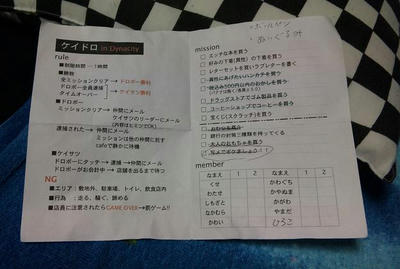 ケイドロ in Dynacity
rule
■制限時間…1時間
■勝敗
全ミッションクリア→ドロボー勝利
ドロボー全員逮捕
タイムオーバー
→ケイサツ勝利
■ドロボー
ミッションクリア→仲間にメール
ケイサツのリーダーにメール
(内容はヒミツでOK)
逮捕された→仲間にメール
ミッションは他の仲間に託す
cafeで静かに待機
■ケイサツ
ドロボーにタッチ→逮捕→仲間にメール
ドロボーがお会計中→店舗を出るまで待つ
NG
■エリア:敷地外、駐車場、トイレ、飲食店内
■行為:走る、騒ぐ、諦める
■店員に注意されたらGAME OVER→罰ゲーム!!
ボールペン
ぬいぐるみ
mission
□エッチな本を買う
□好みの下着(異性)の下着を買う
□レターセットを買いラブレターを書く
□異性にあげたいハンカチを買う
□税込み500円以内のおかしを買う
□ドラッグストアでゴム製品を買う
□コーヒーショップでコーヒーを買う
□宝くじ(スクラッチ)を買う
□銀行の封筒三種類を持ってくる
□大人のおもちゃを買う
member
なまえ 1 2 なまえ 1 2
くわた かわぐち
わたせ かやぬま
しもざと かがわ
なむら やまだ
かわい ひろこ